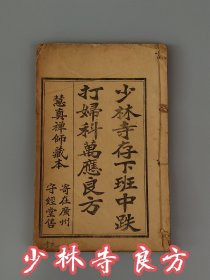 少林寺存下班中跌
打婦科萬應良方
慧真禪師藏本
寄在廣州
守經堂售
少林寺良方